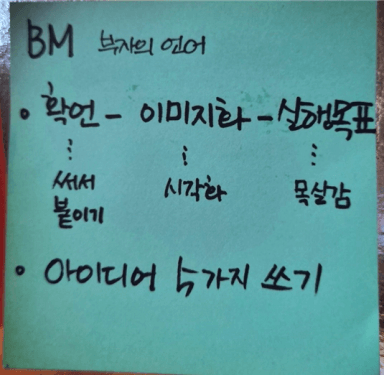 BM 부자의 언어
• 확언 - 이미지화 - 실행목표
⋮ ⋮ ⋮
써서 시각화 목살감
붙이기
• 아이디어 5가지 쓰기